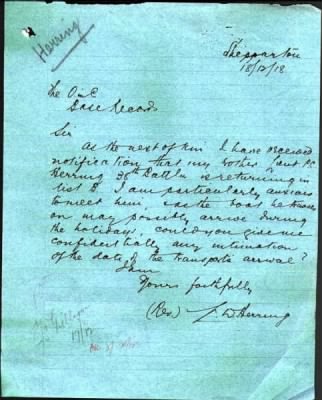 Herring
Shepparton
18/12/18
The O i/c
Base Records
Sir
As the next of kin I have received
notification that my brother Lieut P.C.
Herring 38th Battln is returning in
list I am particularly anxious
to meet him, as the boat he travels
on may possibly arrive during
the holidays, could you give me
confidentially any intimation
of the date of the transports arrival?
I am
Yours faithfully
(Rev.) W Herring